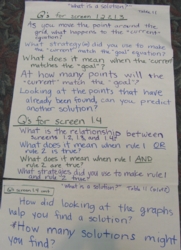 "What is a solution?"
Q's for screen 1.2 & 1.3
As you move the point around the
grid, what happens to the "current"
equation?
What strategy did you use to make
the "current" match the "goal" equations?
What does it mean when the "current"
matches the "goal"?
At how many points will the
"current" match the "goal"?
Looking at the points that have
already been found, can you predict
another solution?
Q's for screen 1.4
What is the relationship between
screens 1.2, 1.3, and 1.4?
What does it mean when rule 1 OR
rule 2 is true?
What does it mean when rule 1 AND
rule 2 are true?
What strategies did you use to make rule 1
and rule 2 true?
"What is a solution?"
How did looking at the graphs
help you find a solution?
How many solutions might
you find?